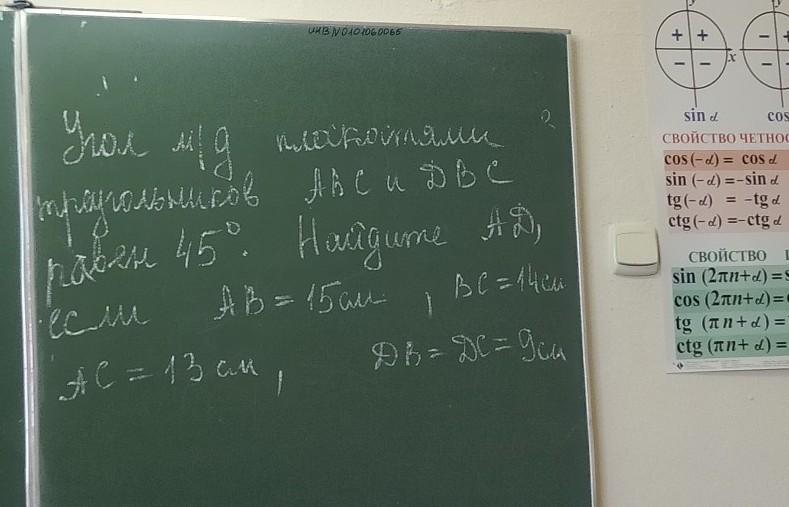 ИНВ№0101060065
Угол м/д плоскостями
треугольников ABC и DBC
равен 45°. Найдите AD,
если AB = 15см, BC = 14см
AC = 13 см, DB = DC = 9см
y
+ +
x
− −
sin α
−
−
cos
СВОЙСТВО ЧЕТНОС
cos (-α) = cos α
sin (-α) = -sin α
tg (-α) = -tg α
ctg (-α) = -ctg α
СВОЙСТВО
sin (2πn+α) = s
cos (2πn+α) =
tg (πn+α) =
ctg (πn+α) =